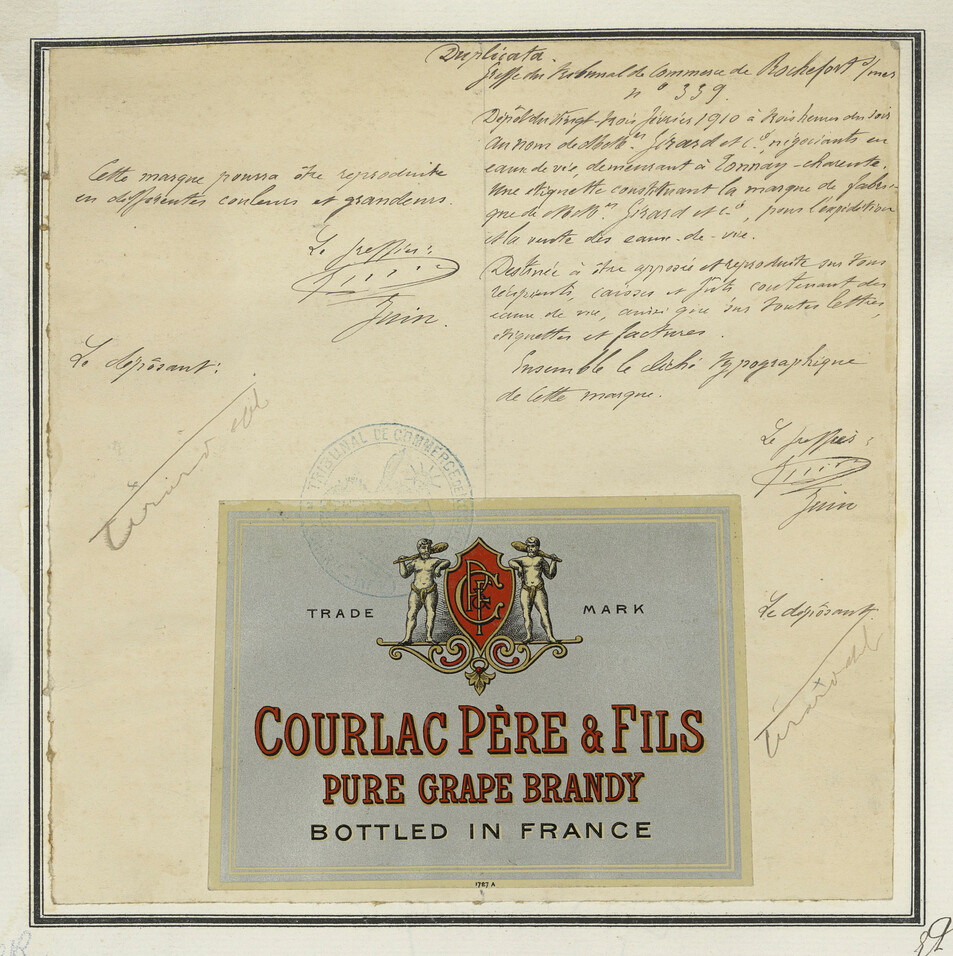 Duplicata.
Greffe du Tribunal de Commerce de Rochefort s/mer
n° 339.
Dépôt du vingt-trois février 1910 à trois heures du soir
au nom de MM.rs Girard et Cie, négociants en
eaux de vie, demeurant à Tonnay-Charente.
Une étiquette constituant la marque de fabri-
que de MM.rs Girard et Cie, pour l'expédition
et la vente des eaux-de-vie.
Destinée à être apposée et reproduite sur tous
récipients, caisses et fûts contenant des
eaux de vie, ainsi que sur toutes lettres,
étiquettes et factures.
Ensemble le cliché typographique
de cette marque.
Le greffier:
Juin
Le dépôsant.
Cette marque pourra être reproduite
en différentes couleurs et grandeurs.
Le greffier:
Juin.
Le dépôsant:
TRIBUNAL DE COMMERCE DE
TRADE MARK
CPF
COURLAC PÈRE & FILS
PURE GRAPE BRANDY
BOTTLED IN FRANCE
1787 A